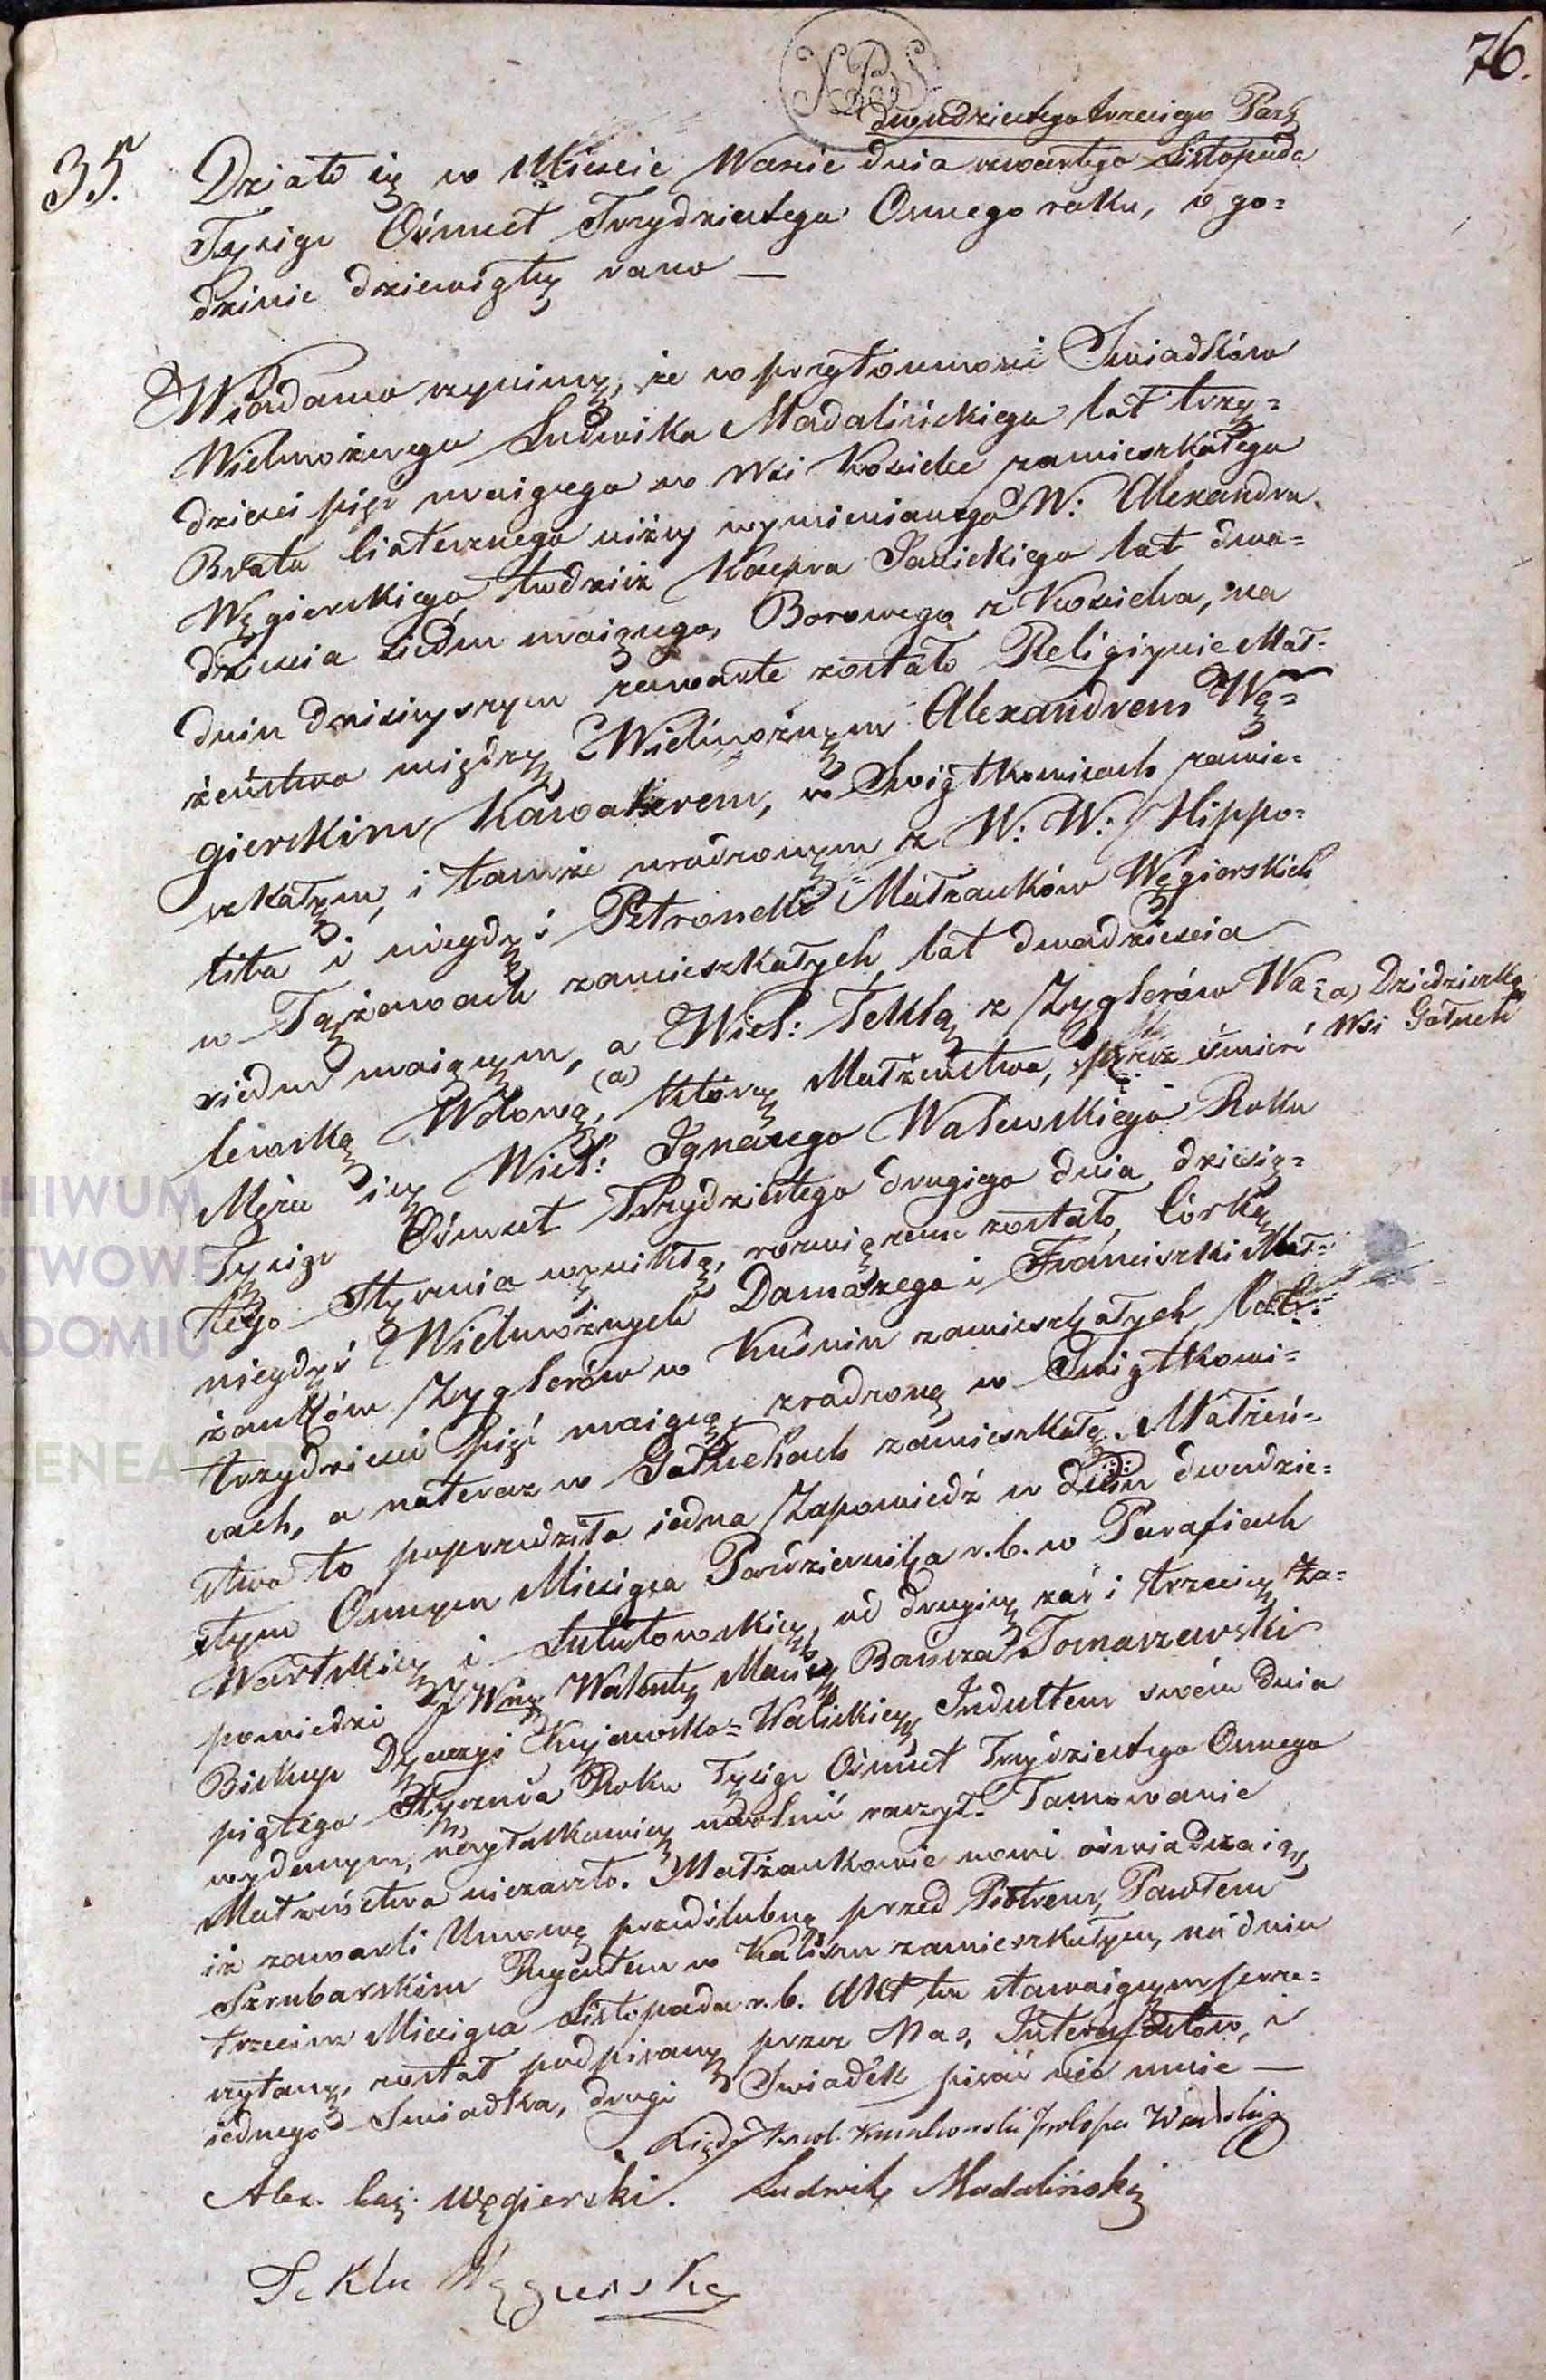 76.
dwudziestego trzeciego Paź
35. Działo się w Mieście Warcie dnia czwartego Listopada
Tysiąc Ośmset Trzydziestego Osmego roku, o go=
dzinie dziewiątey rano —
Wiadomo czynimy, że w przytomności Swiadków
Wielmożnego Ludwika Madalińskiego lat trzy=
dzieści pięć maiącego w Wsi Kościelce zamieszkałego
Brata Ciotecznego niżey wymienianego W: Alexandra
Węgierskiego, tudzież Kacpra Janickiego lat dwa=
dzieścia siedm maiącego, Borowego z Kościelca, na
dniu dzisieyszym zawarte zostało Religiynie Mał=
żeństwo między Wielmożnym Alexandrem Wę=
gierskim Kawalerem, w Swiątkowicach zamie=
szkałym, i tamże urodzonym z W: W: Hippo=
lita i niegdyś Petronelli Małżonków Węgierskich
w Tążewach zamieszkałych, lat dwadzieścia
siedm maiącym, a Wiel: Teklą z Zyglerów Wa= (a) Dziedziczką
lewską Wdową, (a) którey Małżeństwo, przez śmierć Wsi Gałuch
Męża iey Wiel: Ignacego Walewskiego Roku
Tysiąc Ośmset Trzydziestego drugiego dnia dziesią=
tego Stycznia wynikłą, rozwiązane zostało, Córką
niegdyś Wielmożnych Damazego i Franciszki Mał=
żonków Zyglerów w Kuśnin zamieszkałych, lat
trzydzieści pięć maiącą, zrodzoną w Swiątkowi=
cach, a nateraz w Gałuchach zamieszkałą. Małżeń=
stwo to poprzedziła iedna Zapowiedź w dniu dwudzie=
stym Osmym Miesiąca Października r. b. w Parafiach
Wartskiey i Lututowskiey, od drugiey zaś i trzeciey Za=
powiedzi JWny Walenty Maciey Bończa Tomaszewski
Biskup Dyecezyi Kujawsko=Kaliskiey, Indultem swoim dnia
piątego Stycznia Roku Tysiąc Ośmset Trzydziestego Osmego
wydanym, uwolnić raczył. Tamowanie
Małżeństwa niezaszło. Małżonkowie nowi oświadczaią,
iż zawarli Umowę przedślubną przed Piotrem Pawłem
Szrubarskim Regentem w Kaliszu zamieszkałym, na dniu
trzecim Miesiąca Listopada r. b. Akt ten stawaiącym prze=
czytany, został podpisany przez Nas, Interessentów, i
iednego Swiadka, drugi Swiadek pisać nie umie —
Ksiądz Prob. Wartski
Alex. Caj. Węgierski. Ludwik Madaliński
Tekla Węgierska